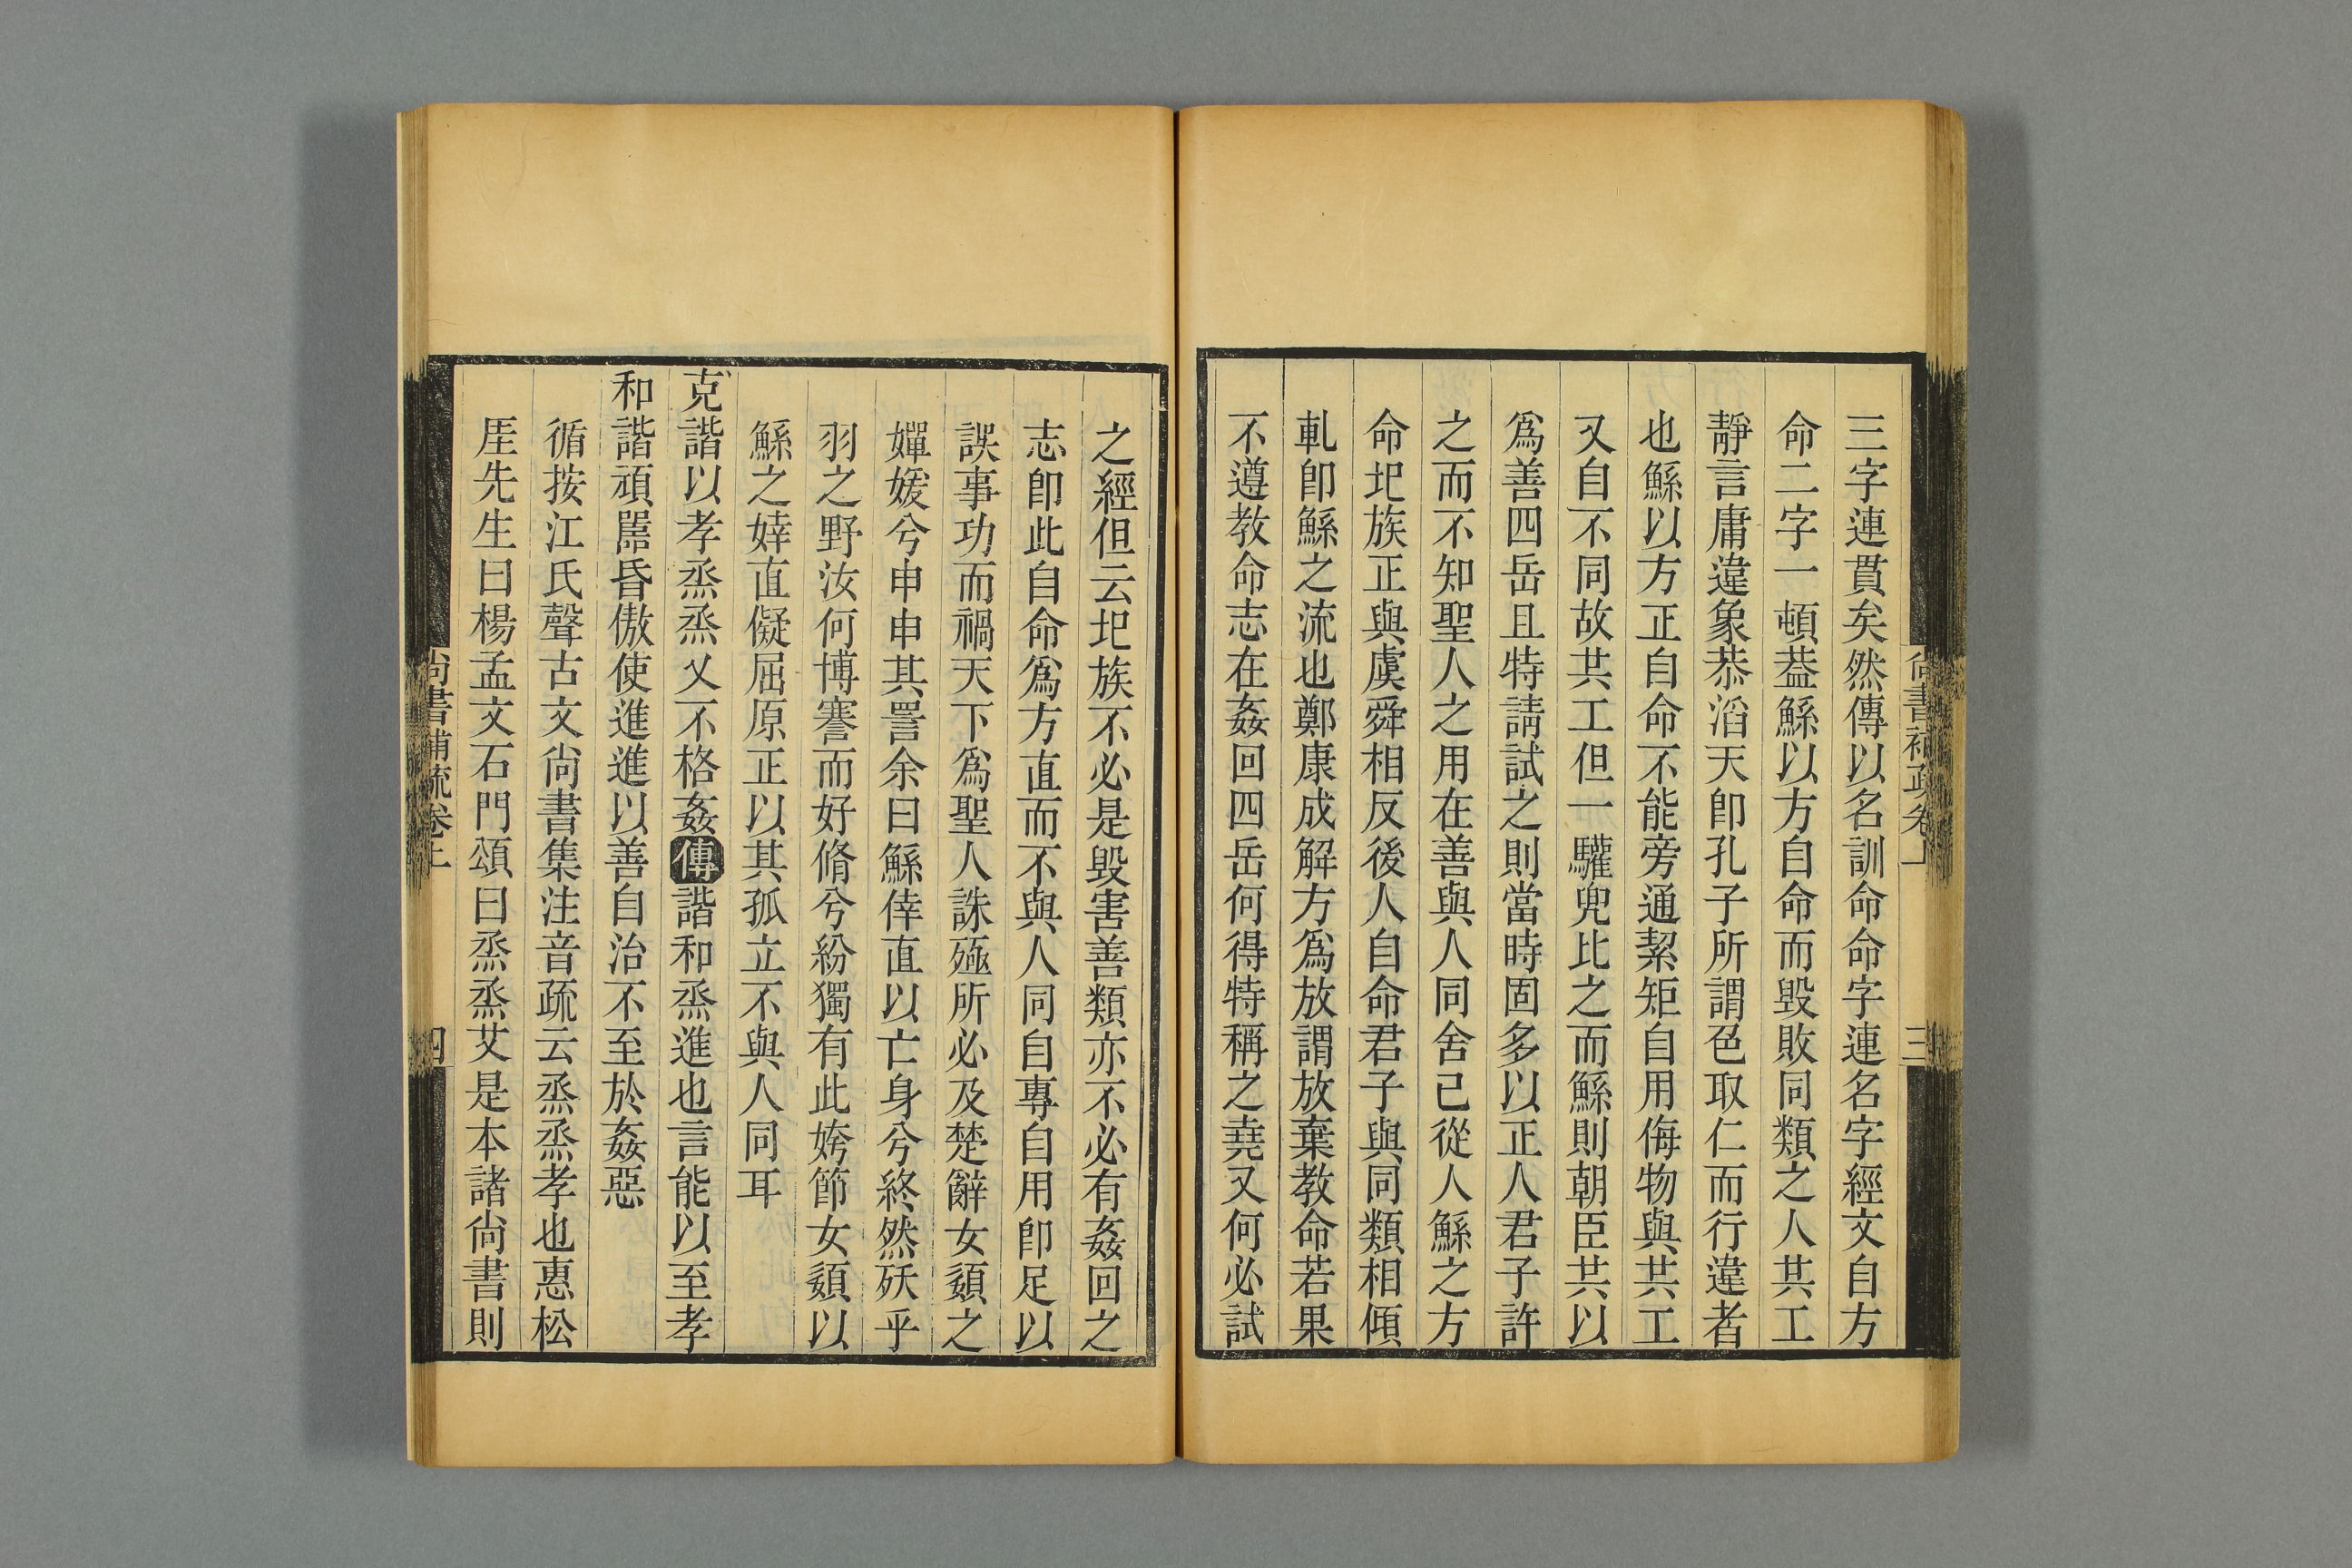 三字連貫矣然傳以名訓命命字連名字經文自方
命二字一頓葢鯀以方自命而毀敗同類之人其工
靜言庸違象恭滔天卽孔子所謂色取仁而行違者
也鯀以方正自命不能旁通絜矩自用侮物與共工
又自不同故共工但一驩兜比之而鯀則朝臣共以
爲善四岳且特請試之則當時固多以正人君子許
之而不知聖人之用在善與人同舍己從人鯀之方
命圯族正與虞舜相反後人自命君子與同類相傾
軋卽鯀之流也鄭康成解方爲放謂放棄教命若果
不遵教命志在姦回四岳何得特稱之堯又何必試
尙書補疏卷上
三
之經但云圯族不必是毀害善類亦不必有姦回之
志卽此自命爲方直而不與人同自專自用卽足以
誤事功而禍天下爲聖人誅殛所必及楚辭女嬃之
嬋媛兮申申其詈余曰鯀倖直以亡身兮終然殀乎
羽之野汝何博謇而好脩兮紛獨有此姱節女嬃以
鯀之婞直儗屈原正以其孤立不與人同耳
克諧以孝烝烝乂不格姦傳諧和烝進也言能以至孝
和諧頑嚚昏傲使進進以善自治不至於姦惡
循按江氏聲古文尙書集注音疏云烝烝孝也惠松
厓先生曰楊孟文石門頌曰烝烝艾是本諸尙書則
尙書補疏卷上
四